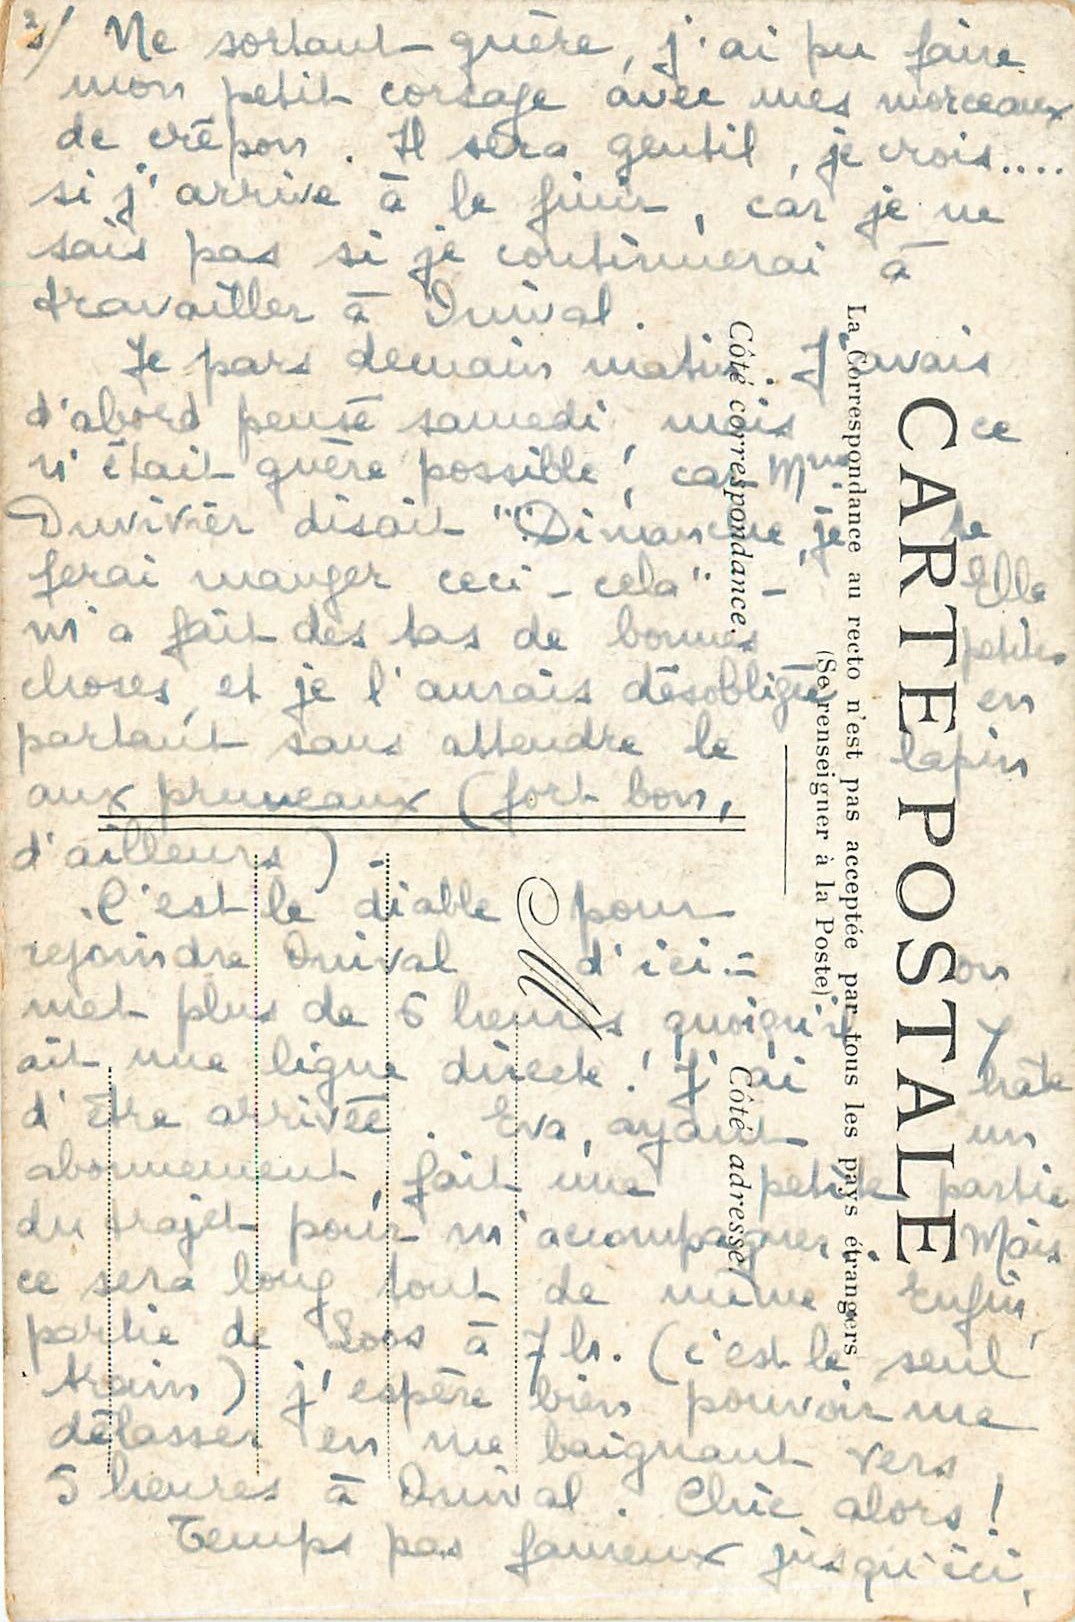 2/ Ne sortant guère, j'ai pu faire
mon petit corsage avec mes morceaux
de crêpon. Il sera gentil, je crois.....
si j'arrive à le finir, car je ne
sais pas si je continuerai à
travailler à Onival.
Je pars demain matin. J'avais
d'abord pensé samedi mais ce
n'était guère possible, car Mme
Duvivier disait "Dimanche, je te
ferai manger ceci - cela" - Elle
m'a fait des tas de bonnes petites
choses, et je l'aurais désobligée en
partant sans attendre le lapin
aux pruneaux (fort bon,
d'ailleurs) -
C'est le diable pour
rejoindre Onival d'ici - on
met plus de 6 heures quoiqu'il y
ait une ligne directe! J'ai hâte
d'être arrivée. Eva, ayant un
abonnement, fait une petite partie
du trajet pour m'accompagner. Mais
ce sera long tout de même. Enfin,
partie de Loos à 7h. (c'est le seul
train) j'espère bien pouvoir me
délasser en me baignant vers
5 heures à Onival. Chic alors!
Temps pas fameux jusqu'ici,
CARTE POSTALE
La Correspondance au recto n'est pas acceptée par tous les pays étrangers
(Se renseigner à la Poste)
Côté correspondance.
Côté adresse
M